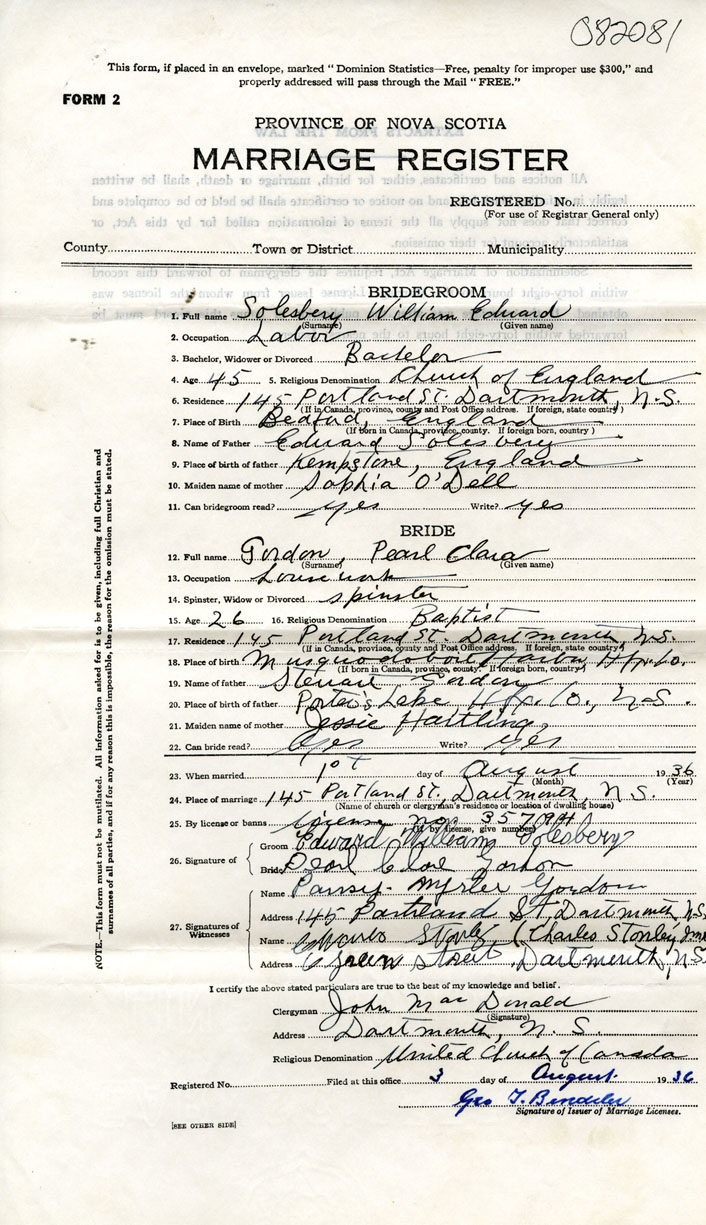 082081
This form, if placed in an envelope, marked "Dominion Statistics—Free, penalty for improper use $300," and
properly addressed will pass through the Mail "FREE."
FORM 2
PROVINCE OF NOVA SCOTIA
MARRIAGE REGISTER
REGISTERED No.
(For use of Registrar General only)
County Town or District Municipality
BRIDEGROOM
1. Full name Solesbery William Edward
(Surname) (Given name)
2. Occupation Labor
3. Bachelor, Widower or Divorced Bachelor
4. Age 45 5. Religious Denomination Church of England
6. Residence 145 Portland St. Dartmouth, N.S.
(If in Canada, province, county and Post Office address. If foreign, state country)
7. Place of Birth Bedford, England
(If born in Canada, province, county. If foreign born, country)
8. Name of Father Edward Solesbery
9. Place of birth of father Kempstone, England
10. Maiden name of mother Sophia O'Dell
11. Can bridegroom read? yes Write? yes
BRIDE
12. Full name Gordon, Pearl Clara
(Surname) (Given name)
13. Occupation housework
14. Spinster, Widow or Divorced spinster
15. Age 26 16. Religious Denomination Baptist
17. Residence 145 Portland St. Dartmouth, N.S.
(If in Canada, province, county and Post Office address. If foreign, state country)
18. Place of birth Musquodoboit Hfx. Co.
(If born in Canada, province, county. If foreign born, country)
19. Name of father Stewart Gordon
20. Place of birth of father Porter's Lake, Hfx. Co., N.S.
21. Maiden name of mother Jessie Hartling
22. Can bride read? Yes Write? yes
23. When married 1st day of August 1936
(Month) (Year)
24. Place of marriage 145 Portland St., Dartmouth, N.S.
(Name of church or clergyman's residence or location of dwelling house)
25. By license or banns License no.
(If by license, give number)
26. Signature of
Groom Edward William Solesbery
Bride Pearl Gordon
27. Signatures of Witnesses
Name Myrler Gordon
Address 145 Portland St, Dartmouth N.S.
Name Stonley, (Charles Stonley
Address Green Street, Dartmouth, N.S.
I certify the above stated particulars are true to the best of my knowledge and belief.
Clergyman John MacDonald
(Signature)
Address Dartmouth, N.S.
Religious Denomination United Church of Canada
Registered No. Filed at this office 3 day of August 1936
Geo T.
Signature of Issuer of Marriage Licenses.
[SEE OTHER SIDE]
NOTE.—This form must not be mutilated. All information asked for is to be given, including full Christian and
surnames of all parties, and if for any reason this is impossible, the reason for the omission must be stated.